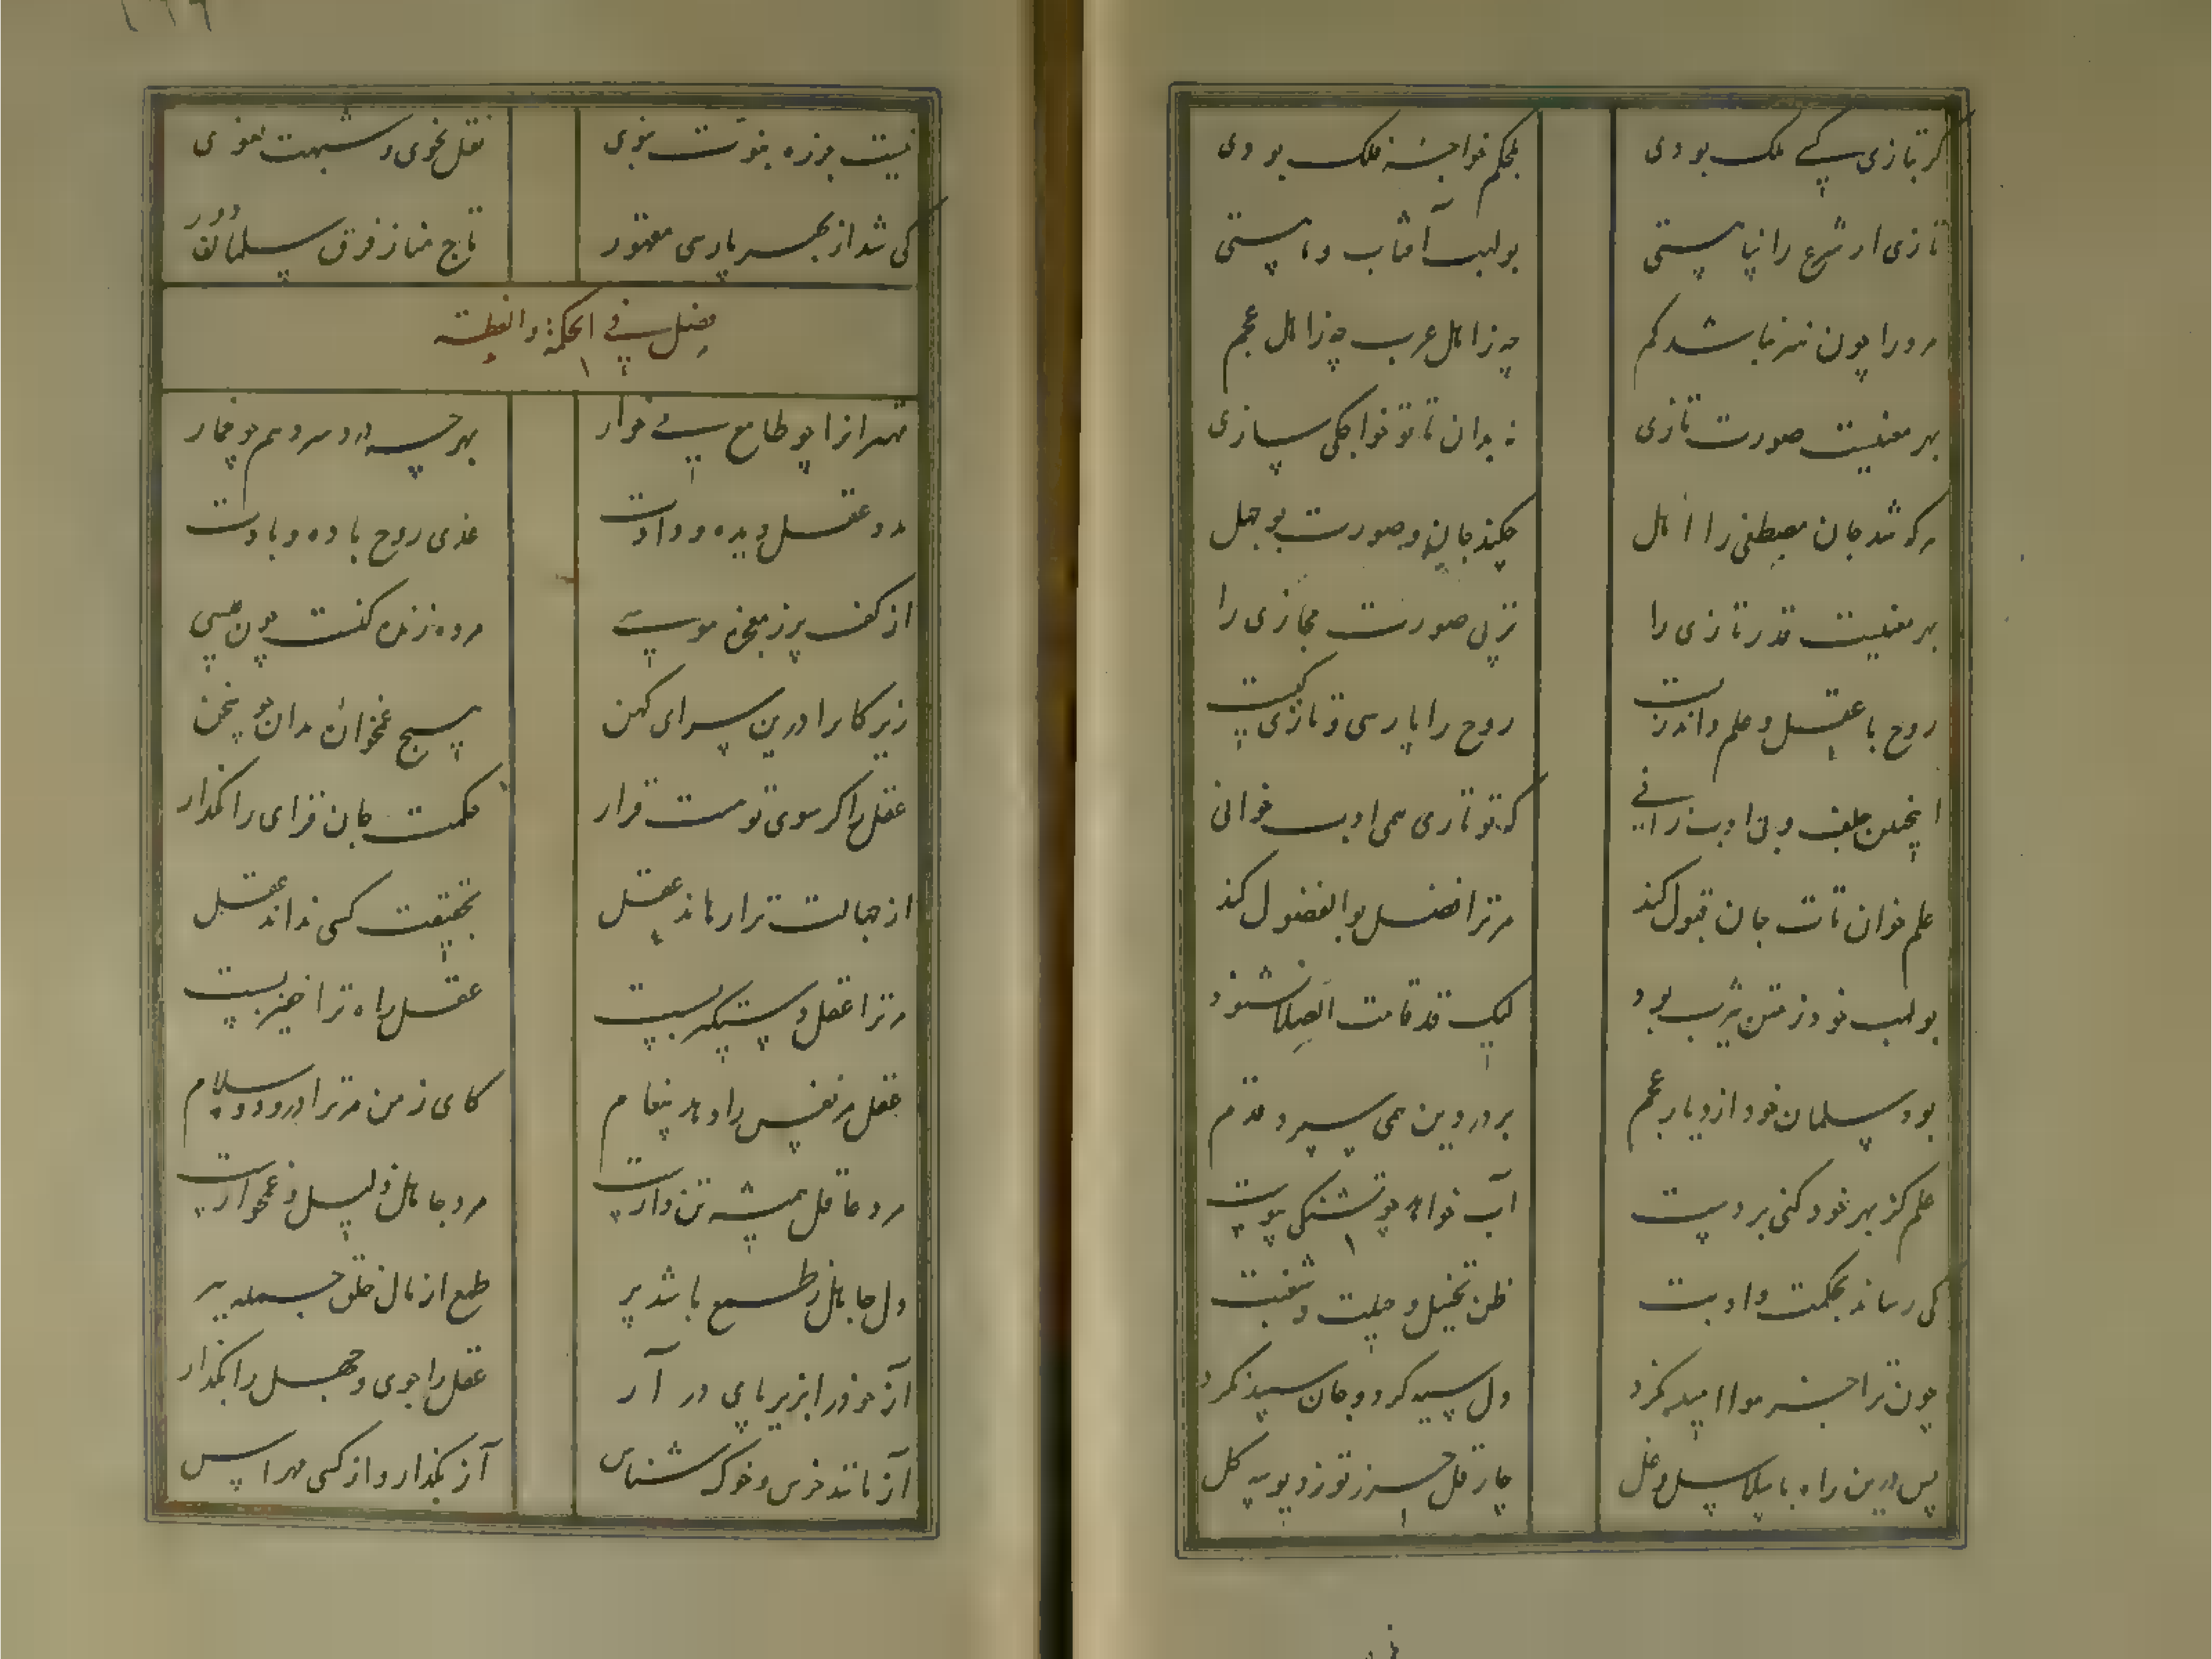 گر بتازی کسی ملک بودی
بحکم خواجه فلک بودی
تازی ار شرع را پناهستی
بولهب آفتاب و ماهستی
مرد را چون هنر نباشد کم
چه ز اهل عرب چه ز اهل عجم
بهر معنیست صورت تازی
نه بدان تا تو خواجگی سازی
هر که شد جان مصطفی را اهل
چکند جان و صورت بوجهل
بهر معنیست قدر تازی را
نز پی صورت مجازی را
روح با عقل و علم داند زیست
روح را پارسی و تازی چیست
اینچنین جلف و بی ادب زانی
که تو تازی همی ادب خوانی
علم خوان تات جان قبول کند
مر ترا فضل بوالفضول کند
بولهب خود ز متن یثرب بود
لیک قد قامت الصلا نشنود
بود سلمان خود از دیار عجم
بر در دین همی سپرد قدم
علم کز بهر خود کنی بر دست
آب خواهد چو تشنگی پیوست
کی رساند بحکمت و ادبت
ظن و تخییل و حیلت و شغبت
چون ترا جز هوا امید نکرد
دل سیه کرد و جان سپید نکرد
پس درین راه با سلاسل و غل
چار قل حرز تو ز دیو چه کل
نیست هرزه نبوت نبوی
نقل نحوی و شبهت اموی
کی شد از بهر پارسی مهتور
تاج منا ز فرق سلمان دور
فصل فی الحکمة والفطنة
بهر چه درد سر دهم چو خمار
مدد عقل دیده و دادست
غذی روح باده و بادست
از کف پر ز معجز موسی
مرده زنده کنست چون عیسی
زیرکا را درین سرای کهن
هیچ غمخوار مدان چو سخن
عقل را گر سوی تو هست قرار
حکمت جان فزای را مگذار
از جهالت ترا رهاند عقل
بحقیقت کسی نداند عقل
مر ترا عقل دستگیر بست
عقل راه ترا خفیر بست
عقل مر نفس را دهد پیغام
کای ز من مر ترا درود و سلام
مرد عاقل همیشه تن دارست
مرد جاهل ذلیل و غمخوارست
دل جاهل ز طمع باشد پر
طمع از مال خلق جمله ببر
آز خود را بزیر پای در آر
عقل را جوی و جهل را بگذار
آز مانند خرس و خوک شناس
آز بگذار و از کسی مهراس